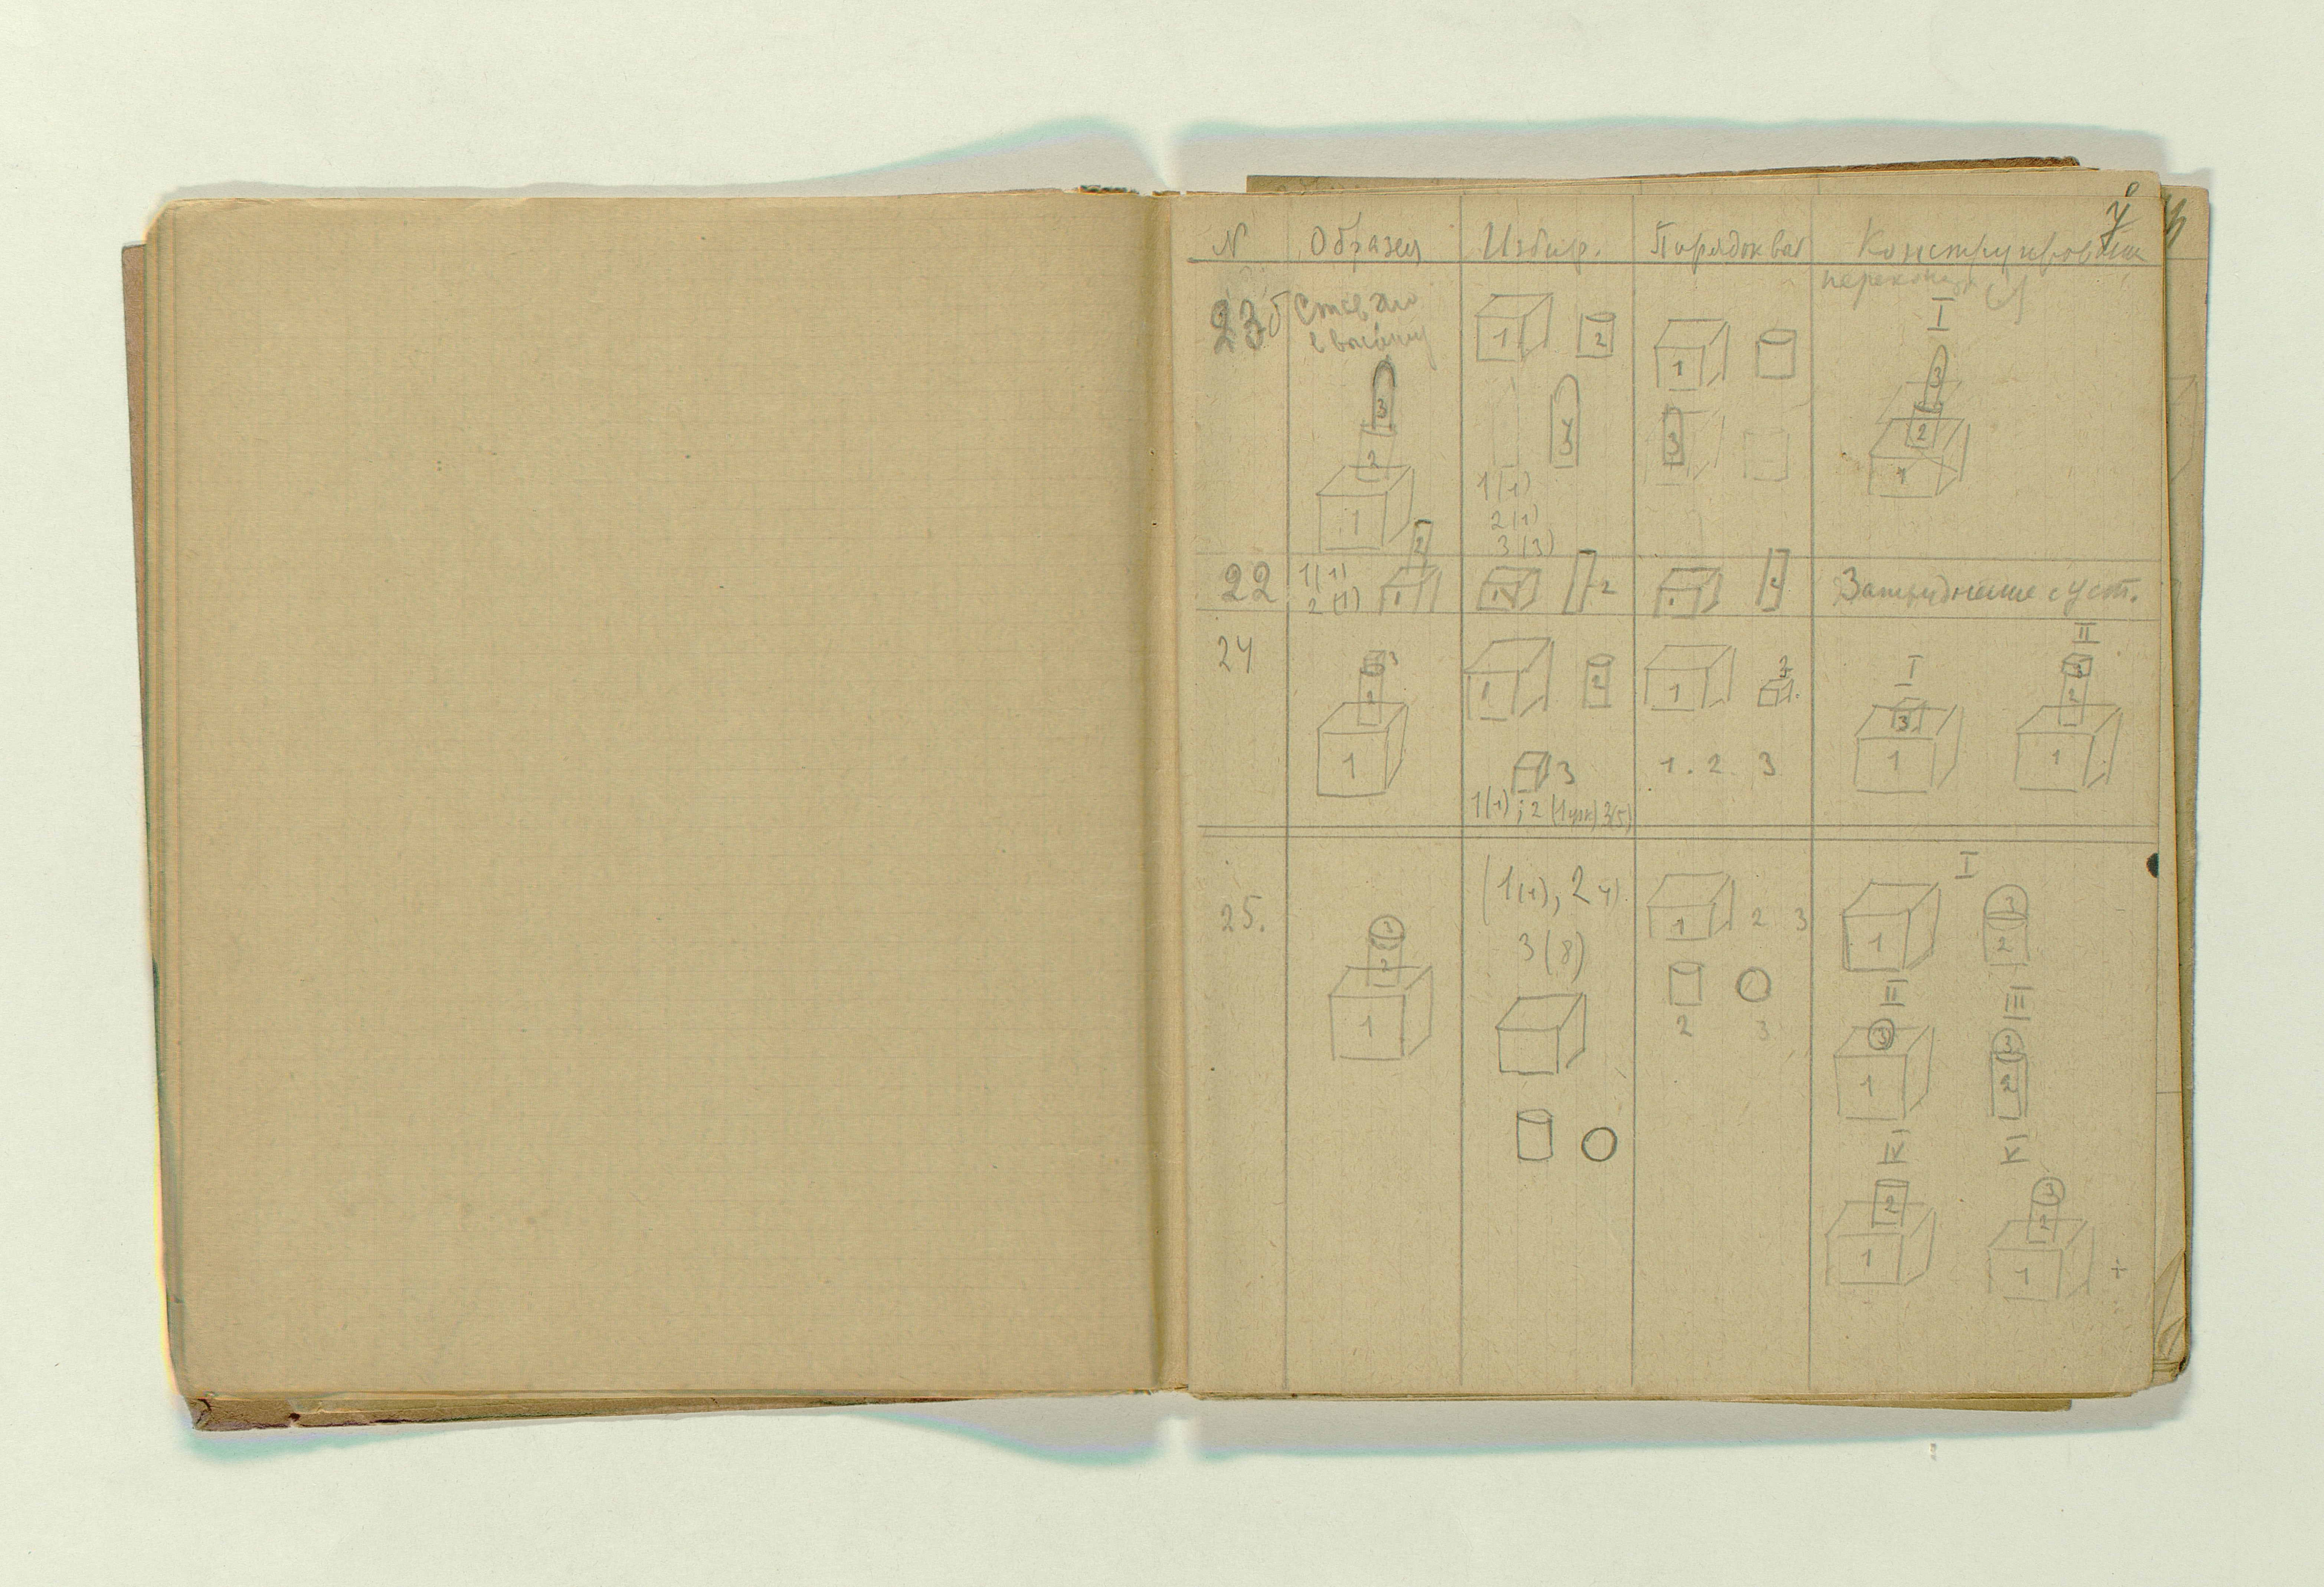 7
N Образец Избир. Порядок Конструирован
23б
I
1 2 1 3
3 3 2
2 3 1
1(1)
2(1)
3(3)
1
22 1(1) 2 1 2 1 2 Затруднение с уст.
2(1) 1
24 3 1 2 1 2 I II
2 3 3
1 3 1 . 2 . 3 1 2
1(1) ; 2 3(5) 1
25. (1(1), 2 4). 1 2 3 I
3 (8) 1 3
2 2 3 2
1 II III
3 3
1 2
IV V
2 3
1 2
1 +